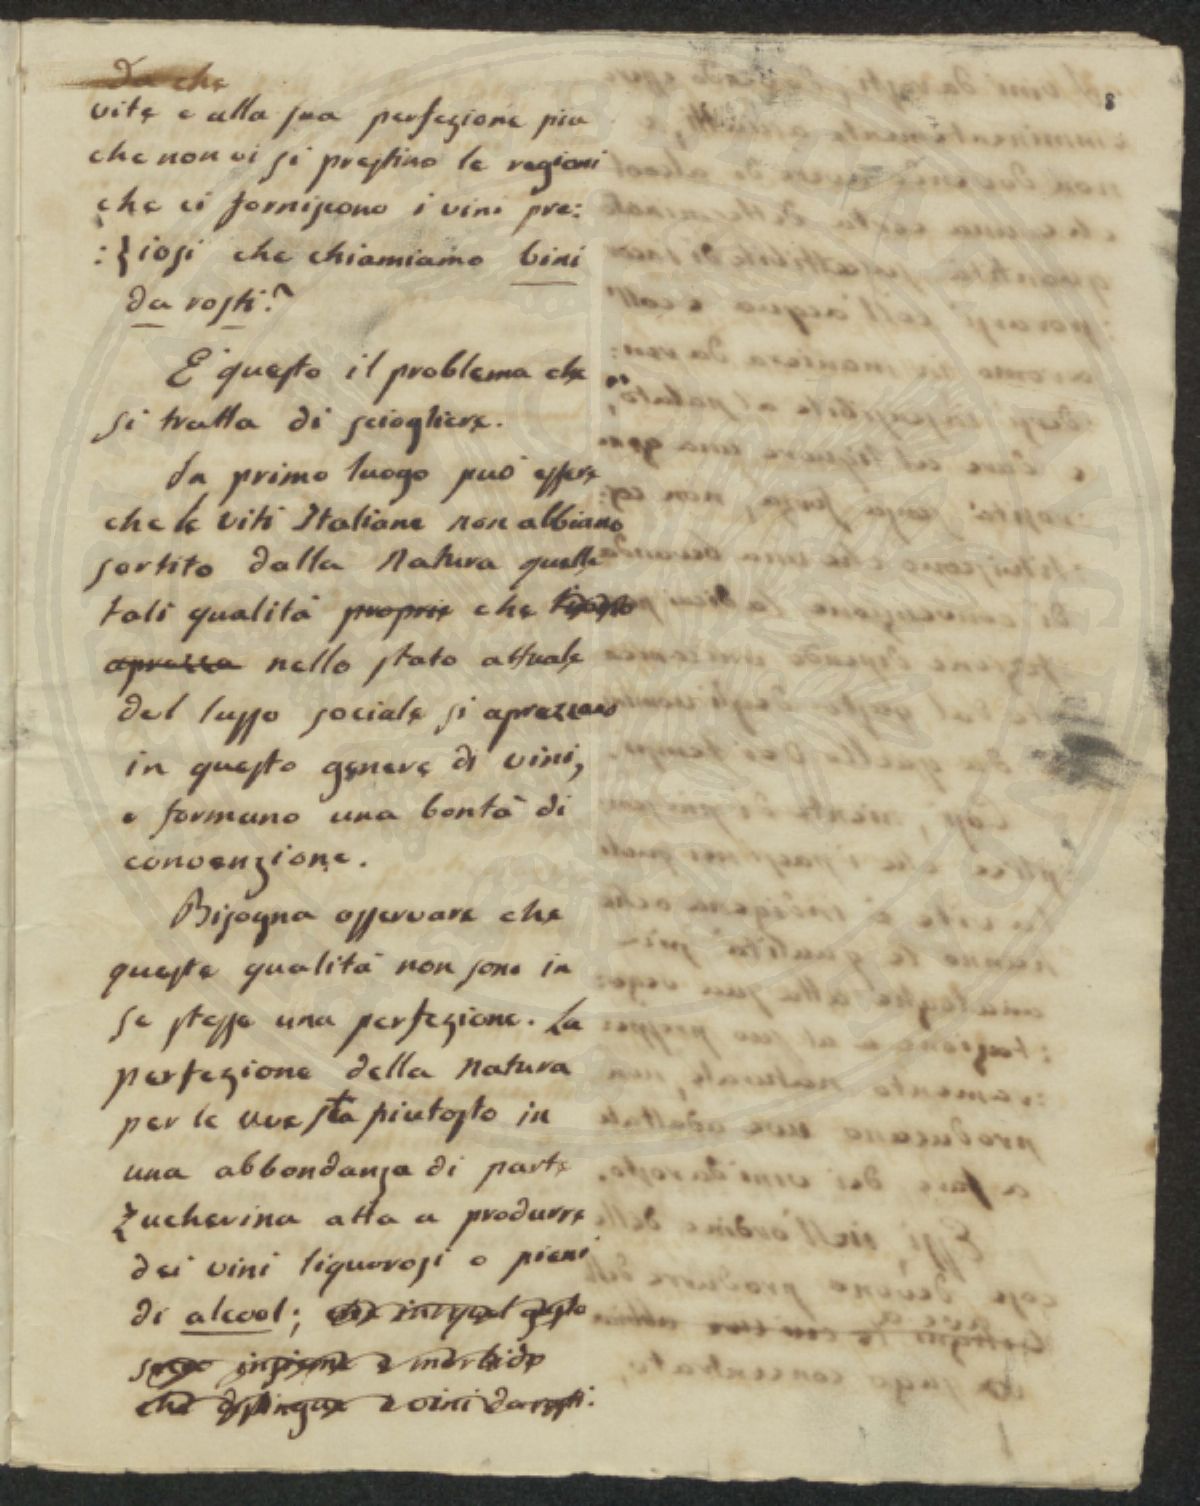 8
da che
vite e alla sua perfezione piu
che non vi si prestino le regioni
che ci forniscono i vini pre:
:ziosi che chiamiamo bini
da rosti?
E' questo il problema che
si tratta di sciogliere.
In primo luogo può essere
che le viti Italiane non abbiano
sortito dalla Natura quelle
tali qualità proprie che
aprezza nello stato attuale
del lusso sociale si aprezzano
in questo genere di vini,
e formano una bontà di
convenzione.
Bisogna osservare che
queste qualità non sono in
se stesse una perfezione. La
perfezione della Natura
per le uve sta piutosto in
una abbondanza di parte
Zucherina atta a produrre
dei vini liquorosi o pieni
di alcool; che in quel gusto
insieme e morbido
che distingue i vini da rosti.